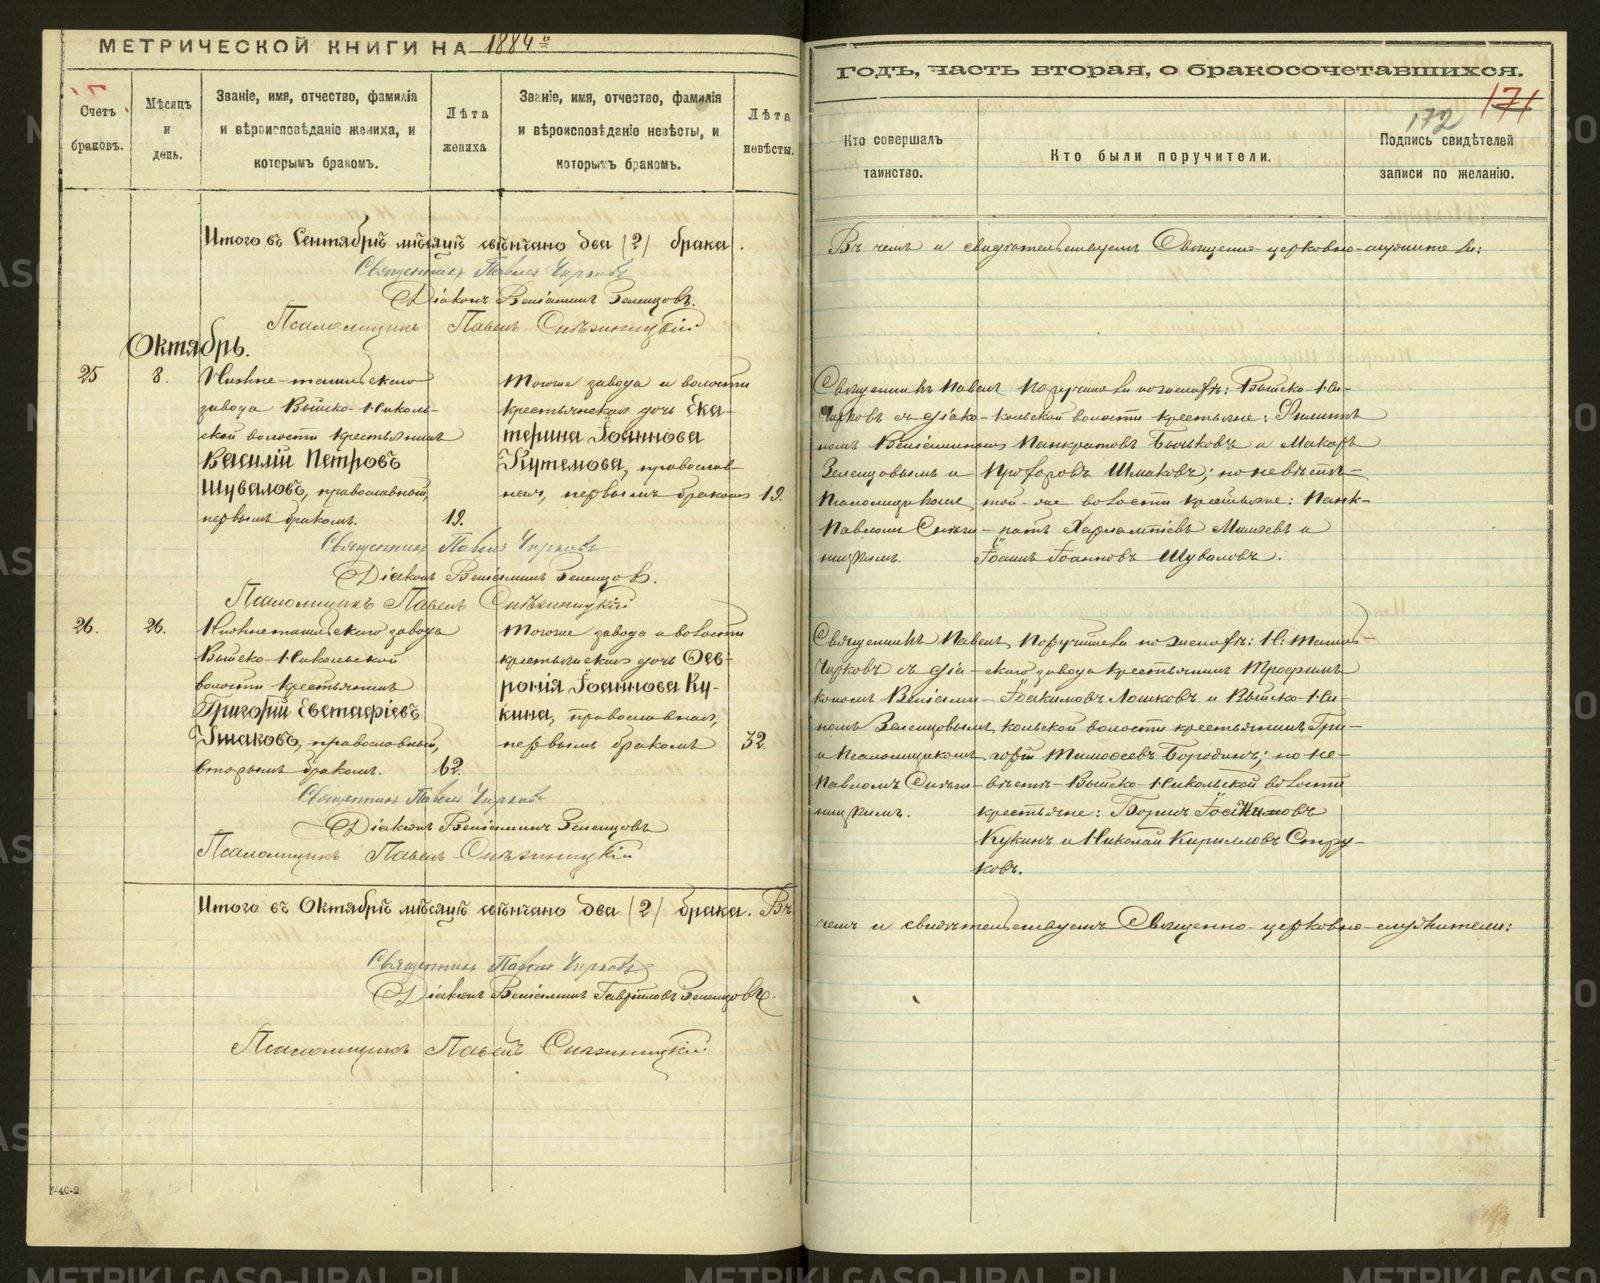 МЕТРИЧЕСКОЙ КНИГИ НА 1884й
ГОДЪ, ЧАСТЬ ВТОРАЯ, О БРАКОСОЧЕТАВШИХСЯ.
171
172
Счетъ браковъ.
Мѣсяцъ и день.
Званіе, имя, отчество, фамилія
и вѣроисповѣданіе жениха, и
которымъ бракомъ.
Лѣта жениха
Званіе, имя, отчество, фамилія
и вѣроисповѣданіе невѣсты, и
которымъ бракомъ.
Лѣта невѣсты.
Кто совершалъ
таинство.
Кто были поручители.
Подпись свидѣтелей
записи по желанію.
Итого въ Сентябрѣ мѣсяцѣ свѣнчано два (2) брака.
Въ чемъ и свидѣтельствуемъ Священно-церковно-служители:
Священникъ Павелъ Чирковъ
Діаконъ Веніаминъ Зеленцовъ.
Псаломщикъ Павелъ
Октябрь.
25
8.
Нижне-тагильскаго
завода Выйско-Николь-
ской волости крестьянинъ
Василій Петровъ
Шуваловъ, православной,
первымъ бракомъ.
19.
Тогоже завода и волости
крестьянская дочь Ека-
терина Іоаннова
Кутемова, православ-
ная, первымъ бракомъ
19.
Священникъ Павелъ
Чирковъ съ діако-
номъ Веніаминомъ
Зеленцовымъ и
Псаломщикомъ
Павломъ
Поручители по женихѣ: Выйско-Ни-
кольской волости крестьяне: Филиппъ
Панкратовъ Бычковъ и Макаръ
Прохоровъ Шмаковъ; по невѣстѣ-
той-же волости крестьяне: Панк-
ратъ Харлампіевъ и
Іоаннъ Іоанновъ Шуваловъ.
Священникъ Павелъ Чирковъ
Діаконъ Веніаминъ Зеленцовъ.
Псаломщикъ Павелъ
26.
26.
Нижнетагильскаго завода
Выйско-Никольской
волости крестьянинъ
Григорій Евстафіевъ
Ушаковъ, православный,
вторымъ бракомъ.
62.
Тогоже завода и волости
крестьянская дочь Фев-
ронія Іоаннова Ку-
кина, православная,
первымъ бракомъ
32.
Священникъ Павелъ
Чирковъ съ діа-
кономъ Веніами-
номъ Зеленцовымъ
и Псаломщикомъ
Павломъ
Поручители по женихѣ: Н. Тагиль-
скаго завода крестьянинъ Трофимъ
Іоакимовъ Лошковъ и Выйско-Ни-
кольской волости крестьянинъ Гри-
горій Тимофеевъ Бородинъ; по не-
вѣстѣ-Выйско-Никольской волости
крестьяне: Борисъ Іоакимовъ
Кукинъ и Николай Кирилловъ Стру-
ковъ.
Священникъ Павелъ Чирковъ
Діаконъ Веніаминъ Зеленцовъ
Псаломщикъ Павелъ
Итого въ Октябрѣ мѣсяцѣ свѣнчано два (2) брака. Въ
чемъ и свидѣтельствуемъ Священно-церковно-служители:
Священникъ Павелъ Чирковъ
Діаконъ Веніаминъ Гавріиловъ Зеленцовъ.
Псаломщикъ Павелъ
METRIKI.GASO-URAL.RU